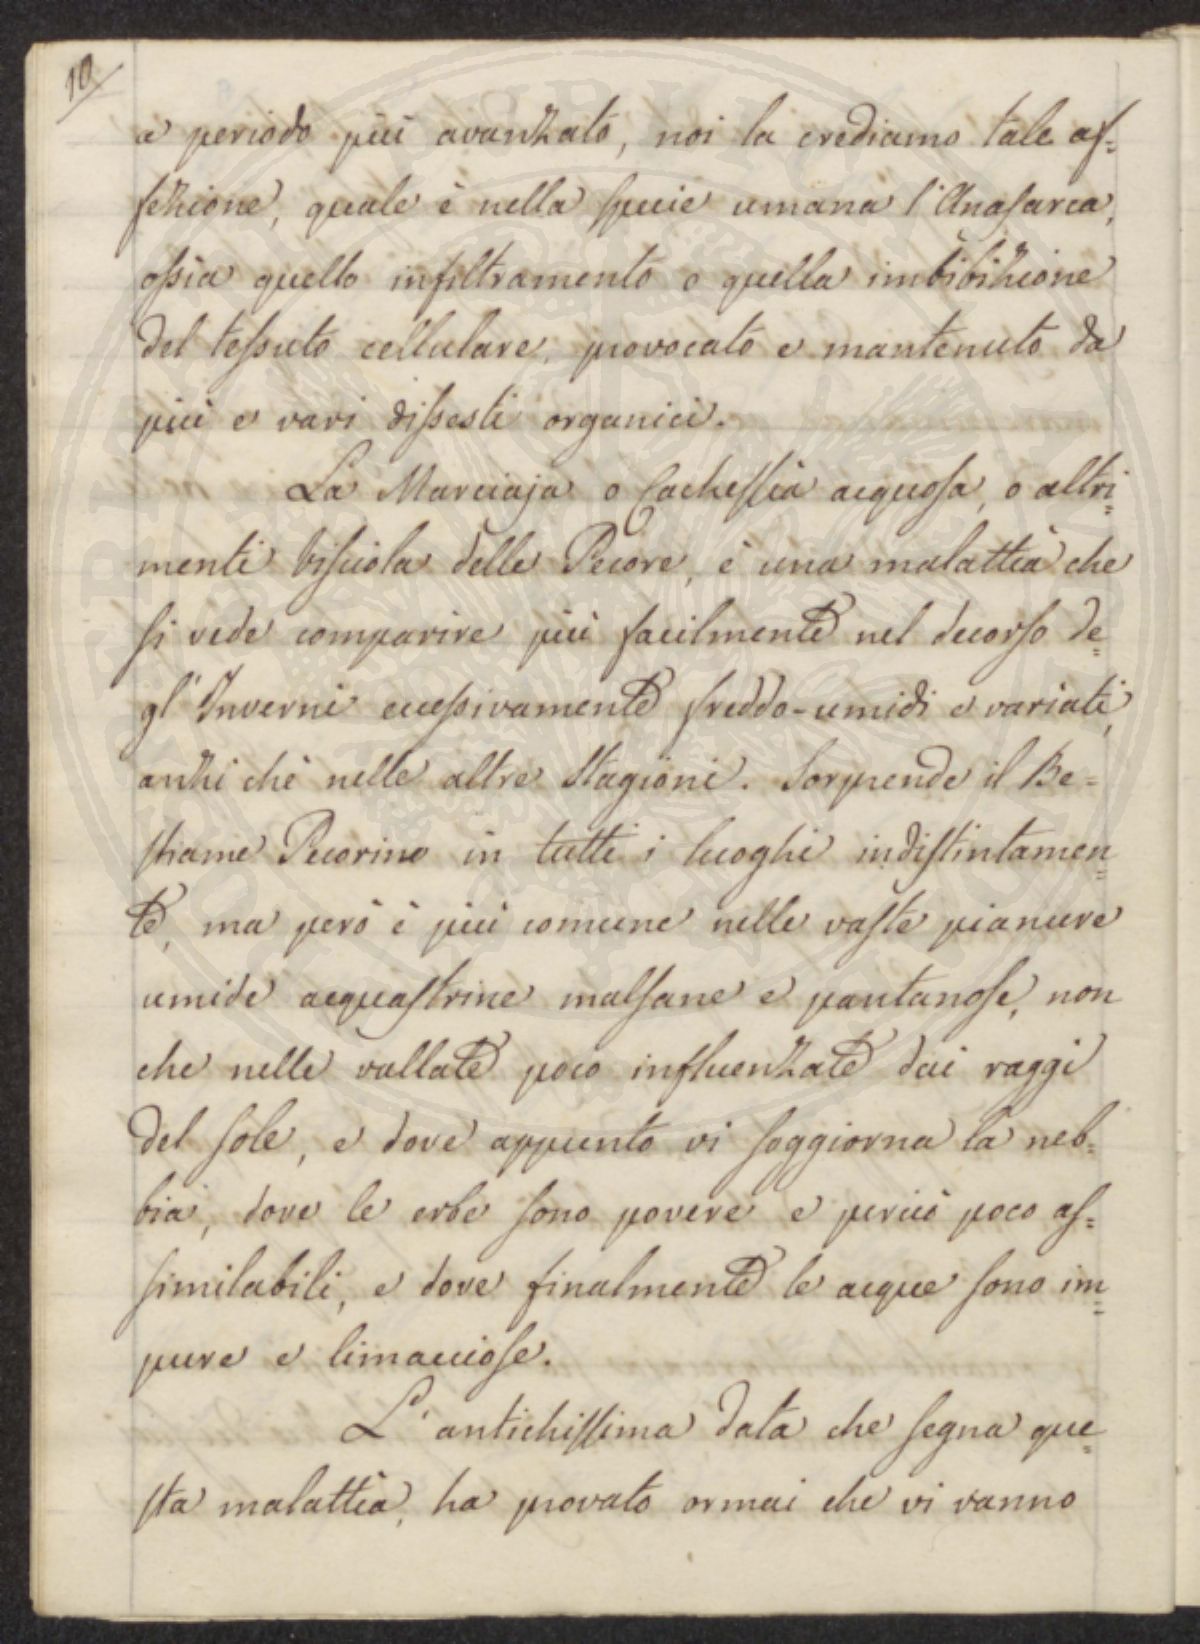 10
a periodo più avanzato, noi la crediamo tale af=
fezione, quale è nella specie umana l'Anasarca,
ossia quello infiltramento e quella imbibizione
del tessuto cellulare, provocato e mantenuto da
più e vari dissesti organici.
La Marciaja o Cachessia acquosa, o altri=
menti bisciola delle Pecore, è una malattia che
si vede comparire più facilmente nel decorso de=
gl'Inverni eccessivamente freddo-umidi e variati,
anzi chè nelle altre Stagioni. Sorprende il Be=
stiame Pecorino in tutti i luoghi indistintamen=
te, ma però è più comune nelle vaste pianure
umide acquastrine malsane e pantanose, non
che nelle vallate poco influenzate dai raggi
del sole, e dove appunto vi soggiorna la neb=
bia, dove le erbe sono povere e perciò poco as=
similabili, e dove finalmente le acque sono im=
pure e limacciose.
L'antichissima data che segna que=
sta malattia, ha provato ormai che vi vanno